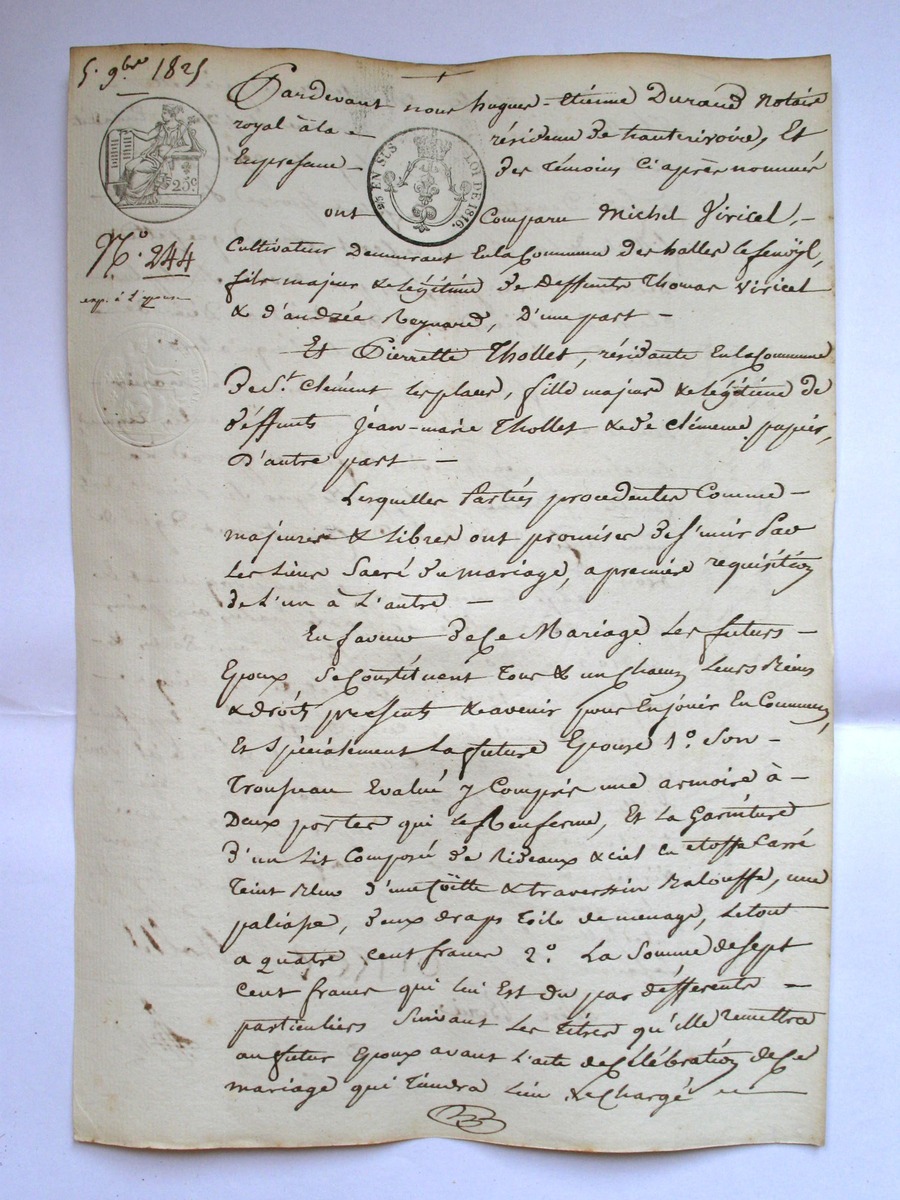 5. 9bre 1825
Pardevant nous hugues-Etienne Durand Notaire
royal à la résidence de hauterivoire, Et
En presence des Témoins Ci après nommés
25 EN SUS LOI DE 1816.
25c
ont Comparu Michel Viricel,
No. 244
Cultivateur Demeurant En la Commune des halles le fenoÿl,
fils majeur & légitime de deffunts Thomas Viricel
& d'andrée Reynard, D'une part –
Et Pierrette Thollet, résidante En la Commune
de St. Clément les places, fille majeure & légitime de
déffunts Jéan-marie Thollet & de Clémence papier,
D'autre part –
Lesquelles Partiés procedentes Comme –
majeures & libres ont promises de s'unir Par
les liens Sacré du mariage, a premiére requisition
de L'un à L'autre –
En faveur de Ce Mariage Les futurs –
Epoux se Constituent Tous & un Chacun Leurs Biens
& droits présents & avenir pour En jouir En Commun,
Et Spécialement La future Epouse 1o. Son –
Trousseau Evalué y Compris une armoire à –
Deux portes qui le Renferme, Et La Garniture
D'un Lit Composé de Rideaux & ciel en étoffe Carré
Teint Bleu d'une Coïtte & traversin Balouffe, une
paliasse, deux draps Toile de menage, Le tout
a quatre cent francs 2o. La Somme de sept
Cent francs qui lui Est du par défferents –
particuliers Suivant Les titres qu'elle Remettra
au futur Epoux avant L'acte de Célébration de Ce
mariage qui Tiendra Lieu & Chargé